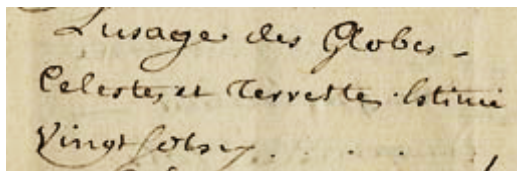 Lusage des Globes -
Celestes, et Terreste. Estimé
Vingt sols . . . .